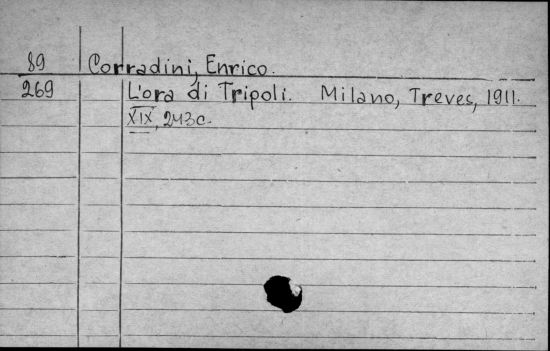 89 Corradini, Enrico.
269 L'ora di Tripoli. Milano, Treves, 1911.
XIX, 243c.